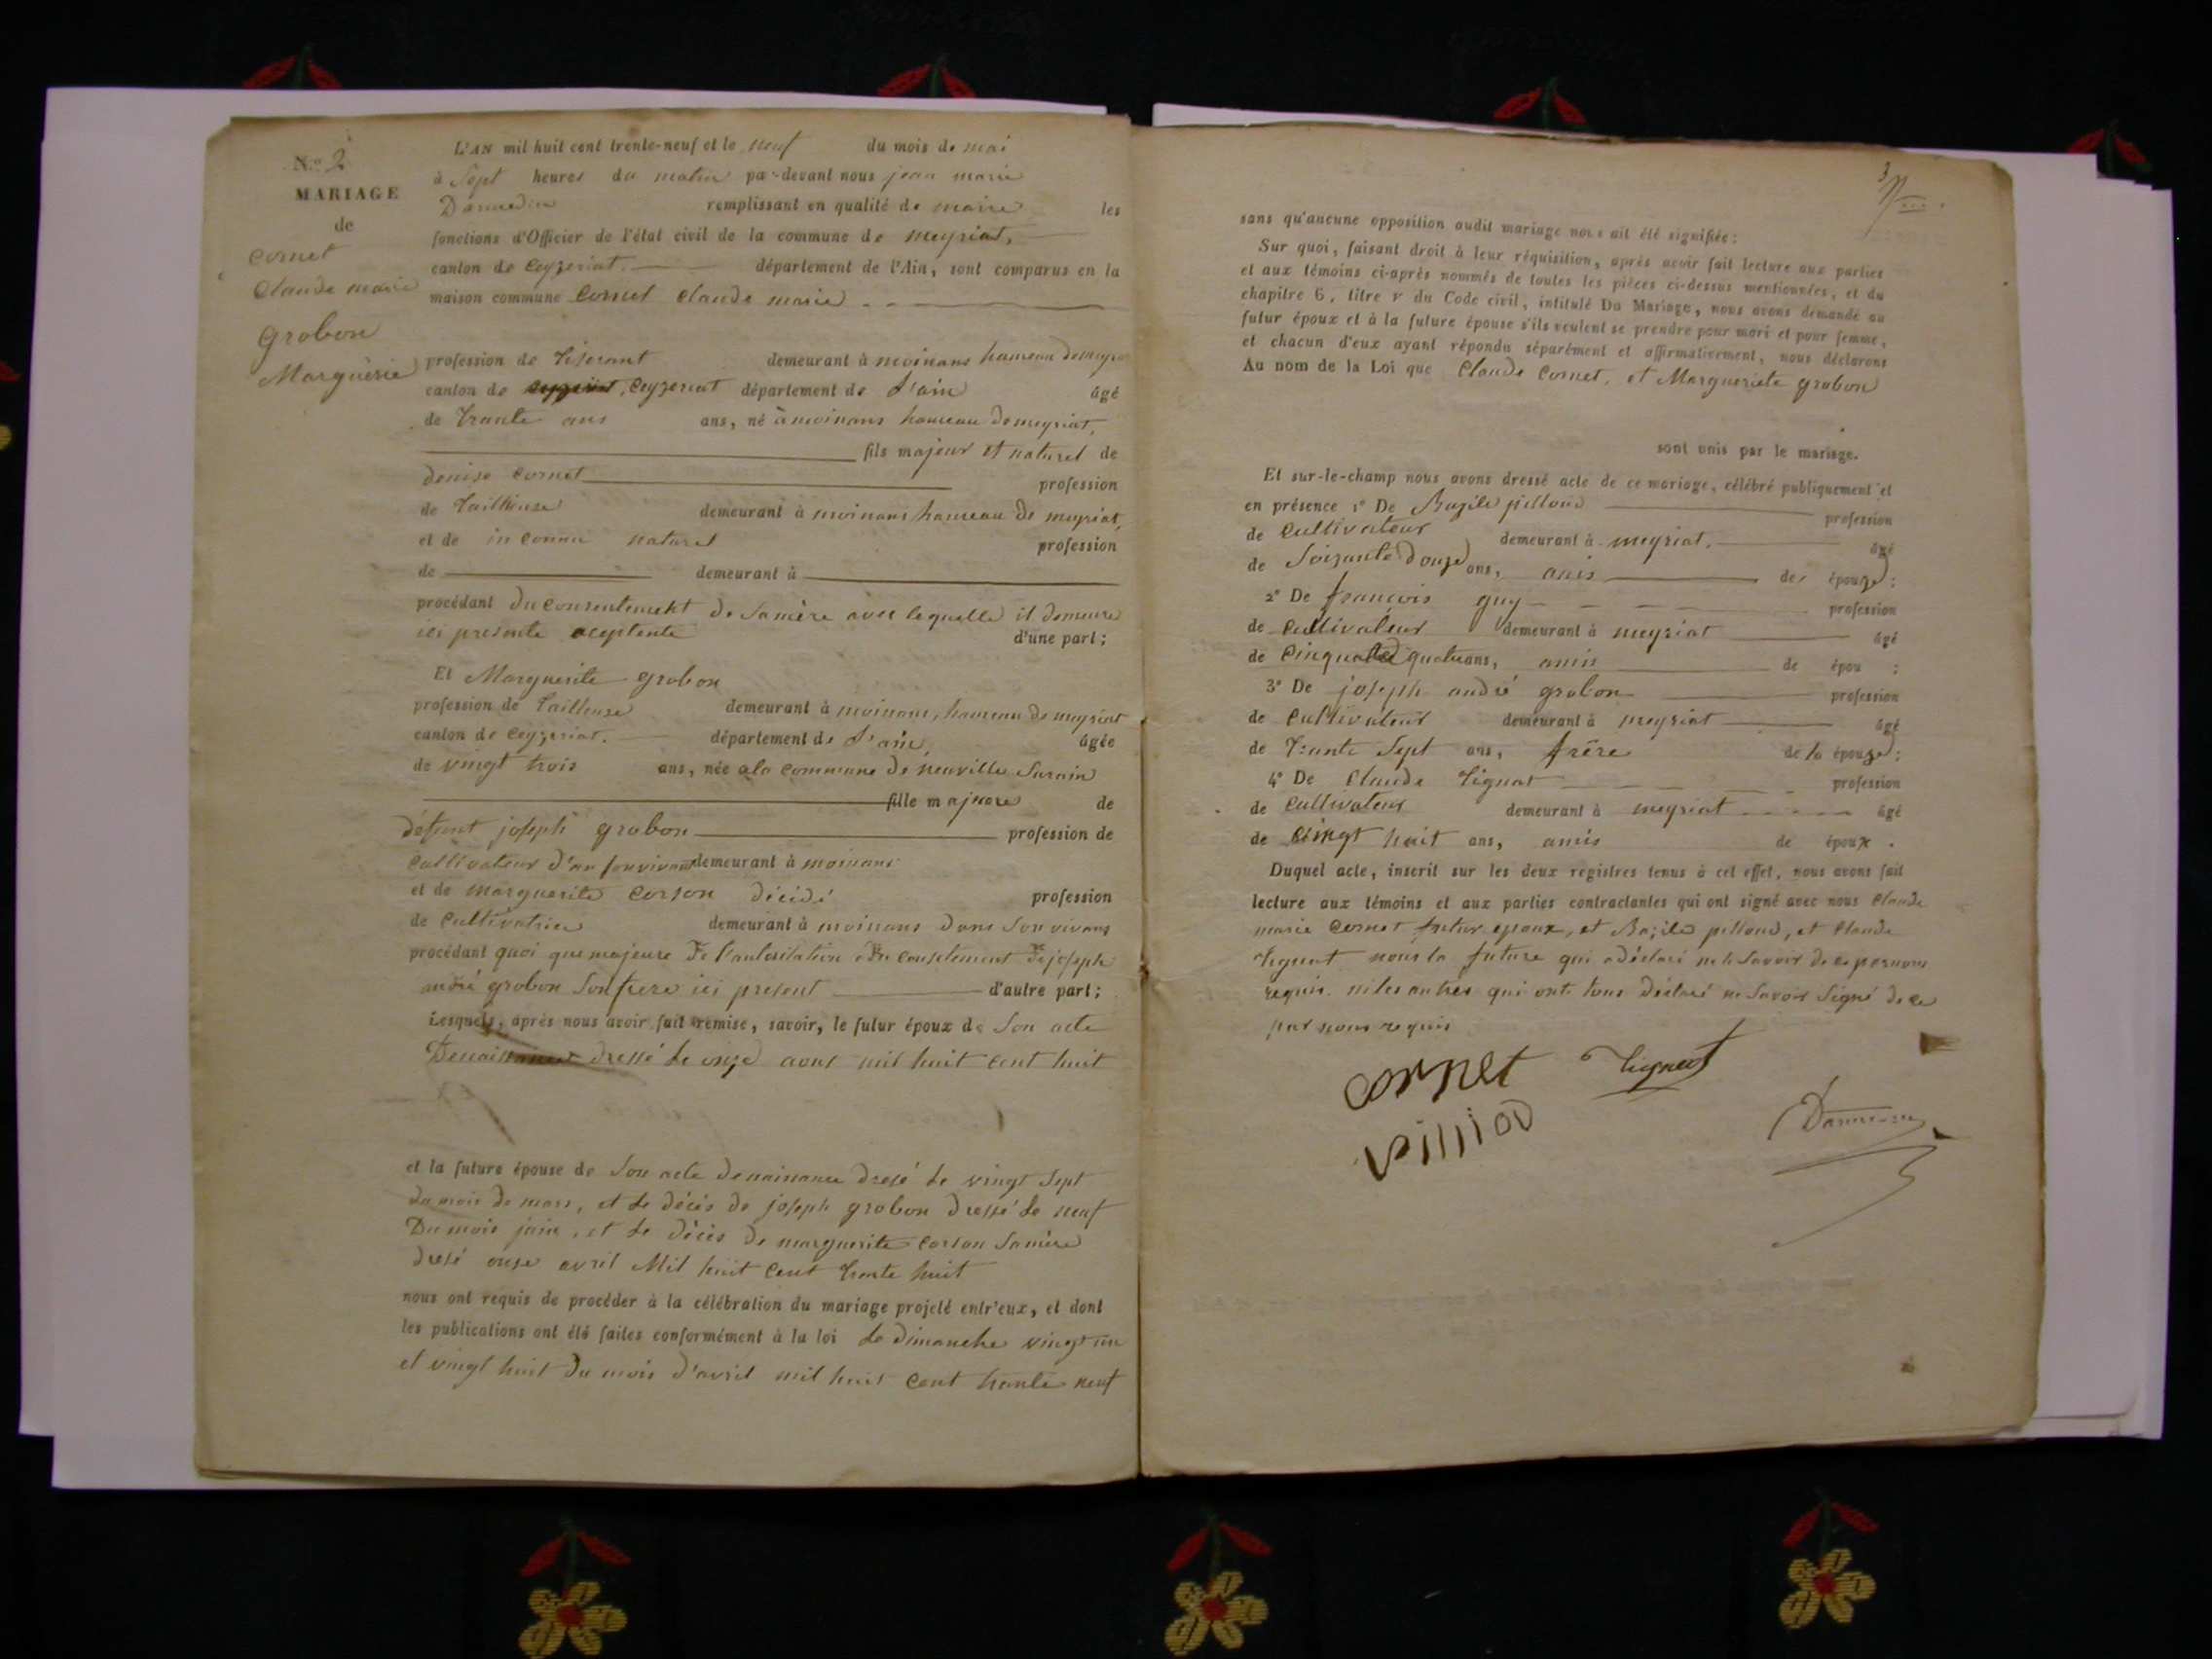 N.º 2
MARIAGE
de
Cornet
Claude marie
Grobon
Marguerie
L'AN mil huit cent trente-neuf et le neuf du mois de mai
à sept heures du matin par-devant nous jean marie
remplissant en qualité de maire les
fonctions d'Officier de l'état civil de la commune de meyriat,
canton de Ceyzeriat. département de l'Ain, sont comparus en la
maison commune Cornet Claude marie
profession de tiserant demeurant à moinans hameau de meyria
canton de Ceyzeriat département de l'ain âgé
de trante ans ans, né à moinans hameau de meyriat,
fils majeur et naturel de
denise Cornet profession
de tailleuse demeurant à moinans hameau de meyriat,
et de inconnu naturel profession
de demeurant à
procédant du consentement de sa mère avec lequelle il demeure
ici presente aceptente d'une part ;
Et Marguerite grobon
profession de tailleuse demeurant à moinans, hameau de meyriat
canton de Ceyzeriat. département de l'ain, âgée
de vingt trois ans, née a la commune de neuville surain
fille majeure de
défunt joseph grobon profession de
cultivateur d'an sonvivant demeurant à moinans
et de marguerite Corson décédé profession
de Cultivatrice demeurant à moinans dans son vivans
procédant quoi que majeure de l'autorisation et du consetement de joseph
andré grobon son frere ici present d'autre part ;
Lesquels, après nous avoir fait remise, savoir, le futur époux de son acte
Denaissance dressé le onze aout mil huit cent huit
et la future épouse de son acte denaissance dresé le vingt sept
du mois de mars, et le décès de joseph grobon dressé le neuf
Du mois juin, et le décès de marguerite Corson sa mère
dresé onse avril Mil huit cent trante huit
nous ont requis de procéder à la célébration du mariage projeté entr'eux, et dont
les publications ont été faites conformément à la loi le dimanche vingt un
et vingt huit du mois d'avril mil huit cent trante neuf
3
sans qu'aucune opposition audit mariage nous ait été signifiée :
Sur quoi, faisant droit à leur réquisition, après avoir fait lecture aux parties
et aux témoins ci-après nommés de toutes les pièces ci-dessus mentionnées, et du
chapitre 6, titre v du Code civil, intitulé Du Mariage, nous avons demandé au
futur époux et à la future épouse s'ils veulent se prendre pour mari et pour femme,
et chacun d'eux ayant répondu séparément et affirmativement, nous déclarons
Au nom de la Loi que Claude Cornet, et Marguerite grobon
sont unis par le mariage.
Et sur-le-champ nous avons dressé acte de ce mariage, célébré publiquement et
en présence 1º De Bazile pilloud profession
de Cultivateur demeurant à meyriat. âgé
de Soizante douze ans, amis des épouze :
2º De francois guy profession
de Cultivateur demeurant à meyriat âgé
de quatreans, amis de épou :
3º De joseph andré grobon profession
de Cultivateur demeurant à meyriat âgé
de trante sept ans, frère de la épouze :
4º De Claude tignat profession
de Cultivateur demeurant à meyriat âgé
de vingt huit ans, amis de époux .
Duquel acte, inscrit sur les deux registres tenus à cet effet, nous avons fait
lecture aux témoins et aux parties contractantes qui ont signé avec nous Claude
marie Cornet futur epoux, et Bazile pilloud, et Claude
tignat la future qui a déclaré ne savoir de ce parnous
requis. ni les autres qui ont tous déclaré ne savoir signé de ce
par nous requis
cornet tignat